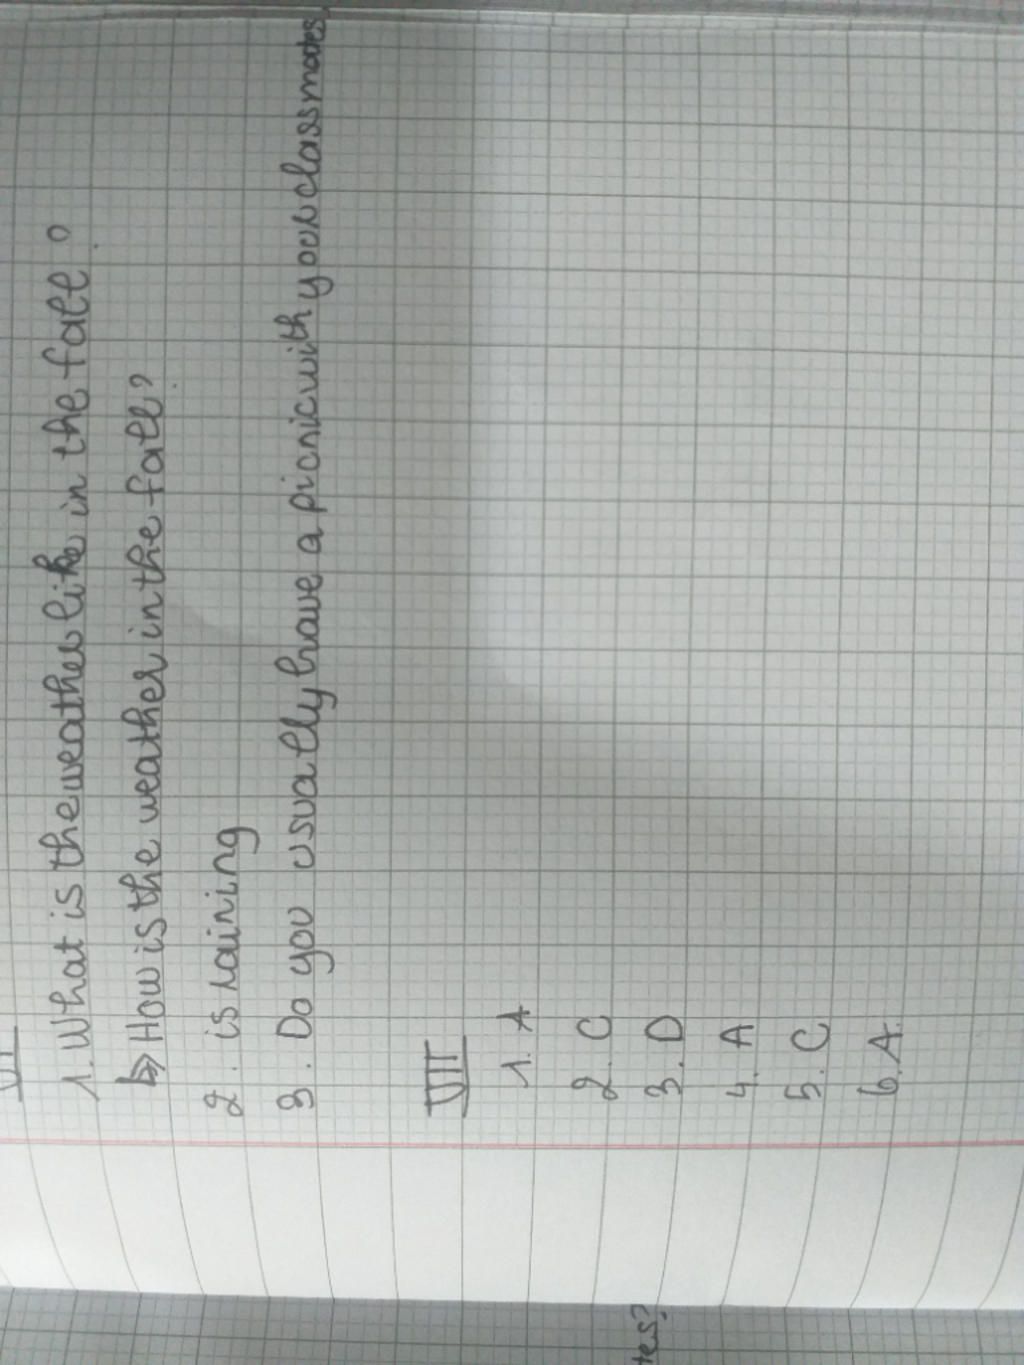 VI
1. What is the weather like in the fall?
↳ How is the weather in the fall?
2. is raining
3. Do you usually have a picnic with your classmates
VII
1. A
2. C
3. D
4. A
5. C
6. A.
tes?